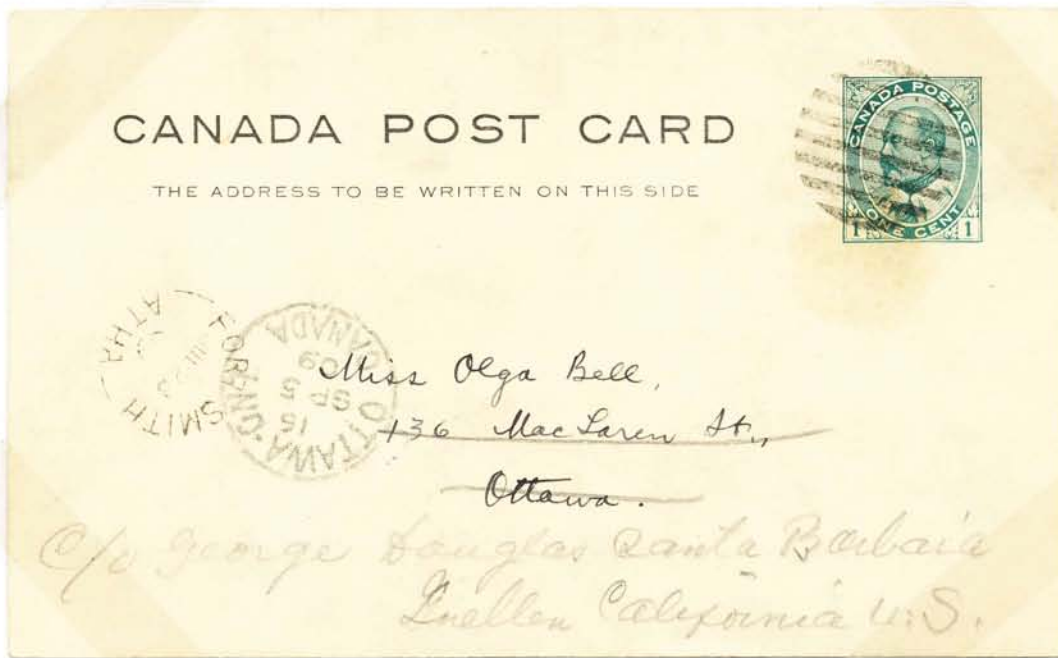 CANADA POST CARD
THE ADDRESS TO BE WRITTEN ON THIS SIDE
CANADA POSTAGE
1 ONE CENT 1
FORT SMITH
ATHA
OTTAWA · ONT
15
SP 5
09
CANADA
Miss Olga Bell,
136 MacLaren St.,
Ottawa.
C/o George Douglas Santa Barbara
California U.S.